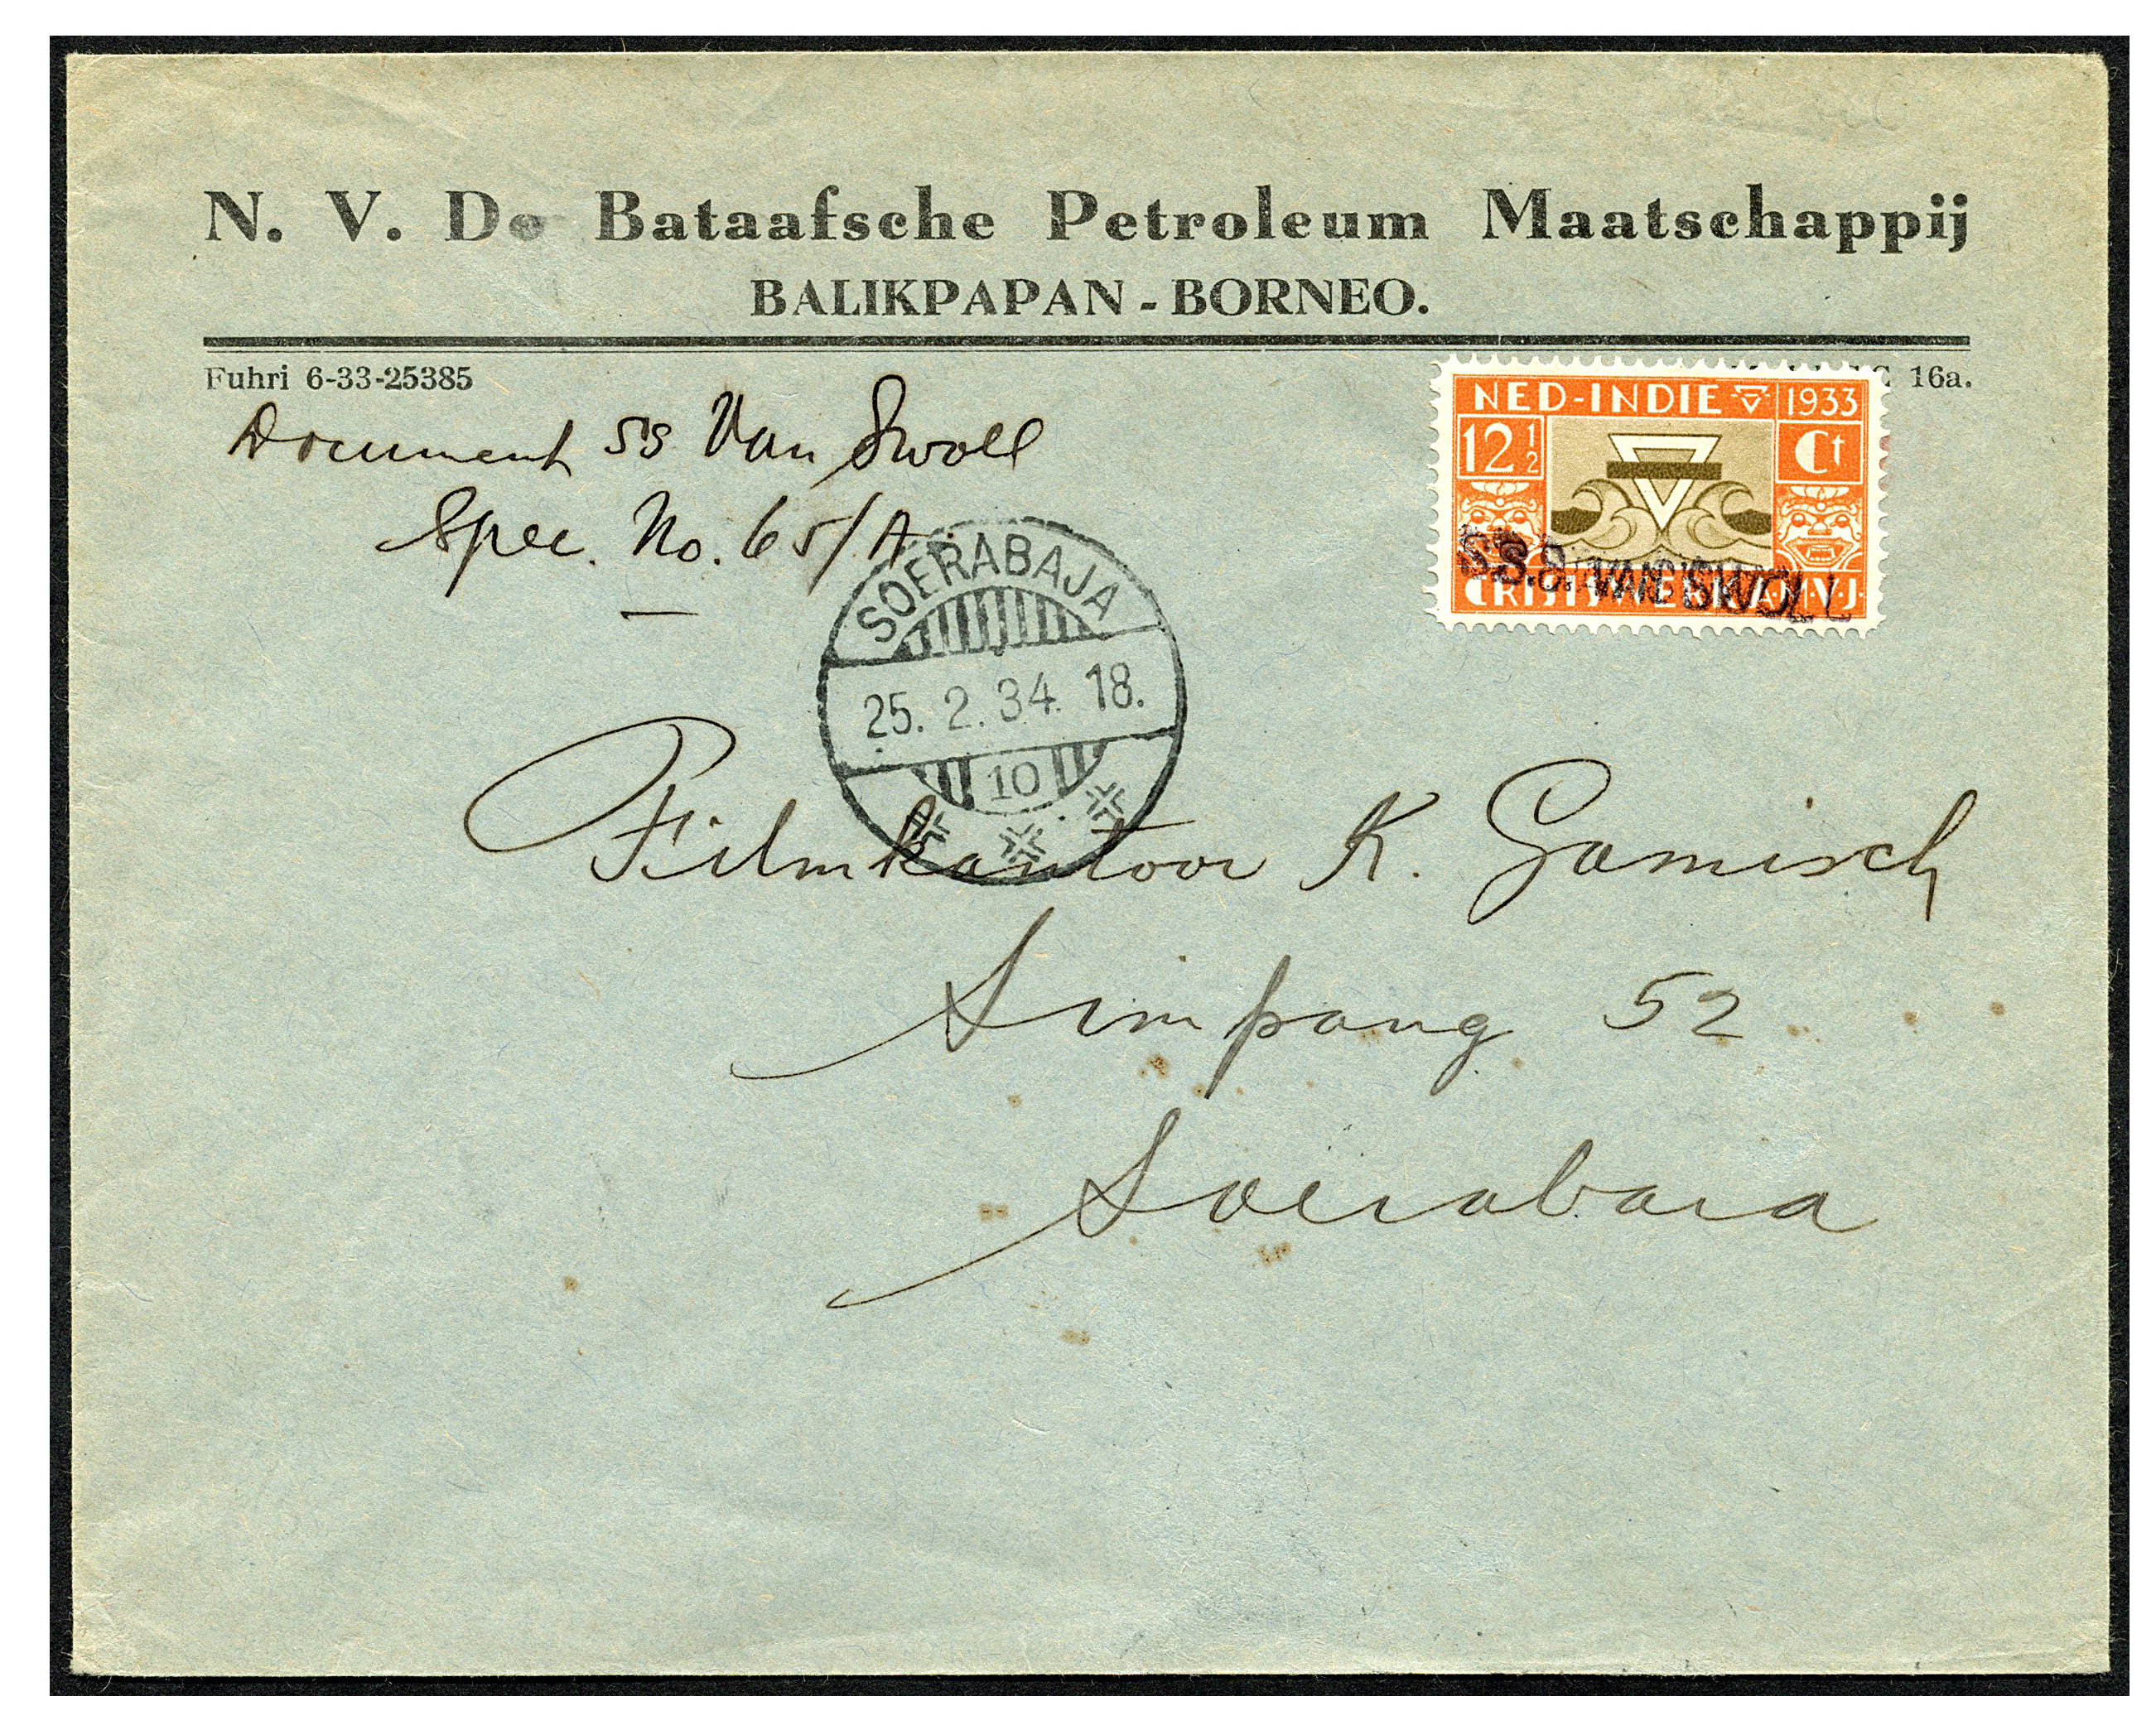 N. V. De Bataafsche Petroleum Maatschappij
BALIKPAPAN - BORNEO.
Fuhri 6-33-25385
16a.
Document SS Van Swoll
Spec. No. 65/A.
NED-INDIE 1933
12½ Ct
S.S. VAN SWOLL
CRISISWERK A·M·V·J·
SOERABAJA
25. 2. 34. 18.
10
Filmkantoor K. Gamisch
Simpang 52
Soerabaia